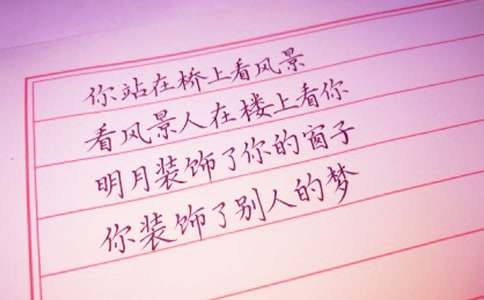 你站在桥上看风景
看风景人在楼上看你
明月装饰了你的窗子
你装饰了别人的梦